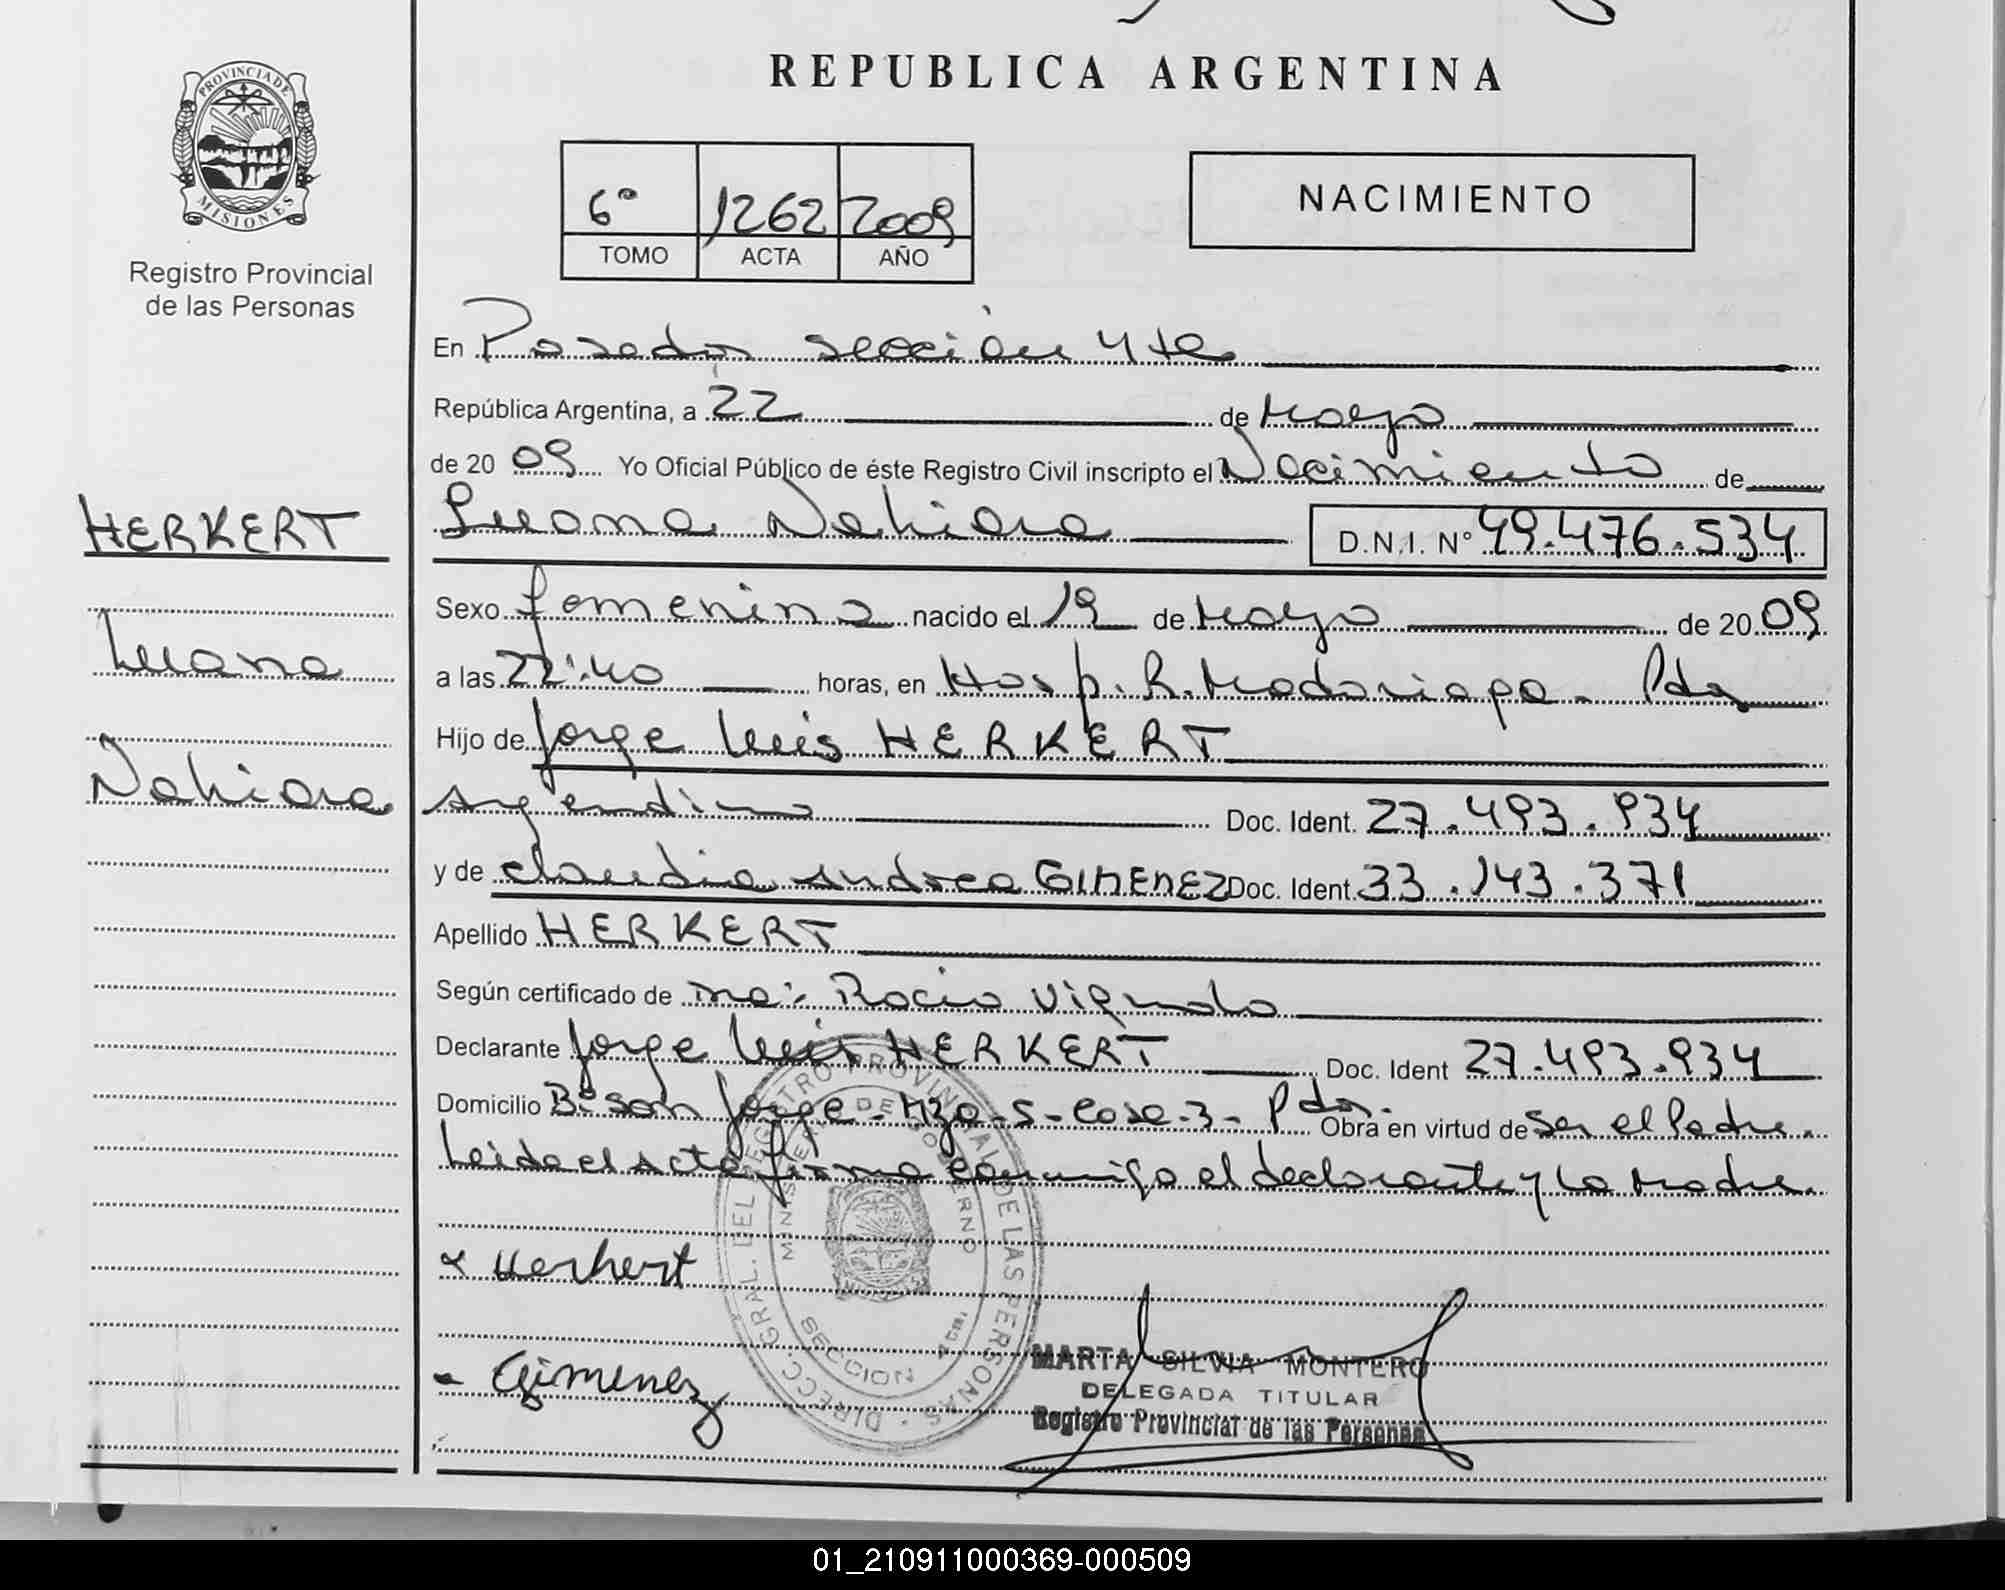 REPUBLICA ARGENTINA
PROVINCIA DE
MISIONES
Registro Provincial
de las Personas
6º 1262 2009
TOMO ACTA AÑO
NACIMIENTO
En Posadas sección 4ta
República Argentina, a 22 de Mayo
de 20 09 Yo Oficial Público de éste Registro Civil inscripto el Nacimiento de
HERKERT
Luana Nahiara D.N.I. Nº 49.476.534
Sexo femenino nacido el 19 de Mayo de 20 09
Luana
a las 22:40 horas, en Hosp. R. Madariaga - Pdas
Hijo de Jorge Luis HERKERT
Nahiara
Argentino Doc. Ident. 27.493.934
y de Claudia Andrea GIMENEZ Doc. Ident. 33.143.371
Apellido HERKERT
Según certificado de Ma: Rocio
Declarante Jorge Luis HERKERT Doc. Ident 27.493.934
Domicilio Bº San Jorge - Mza - 5 - Casa - 3 - Pdas. Obra en virtud de Ser el Padre.
Leida el Acta firma conmigo el declarante y La Madre.
Herkert
Gimenez
DIRECC. GRAL. DEL REGISTRO PROVINCIAL DE LAS PERSONAS
MINISTERIO DE GOBIERNO
SECCION 4ta.
MARTA SILVIA MONTERO
DELEGADA TITULAR
Registro Provincial de las Personas
01_210911000369-000509